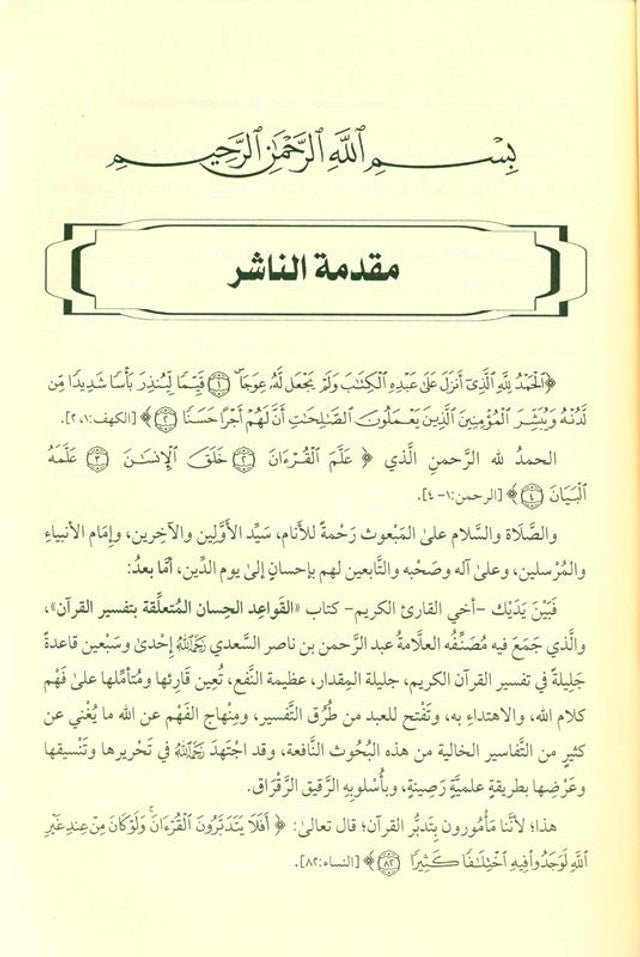 بِسْمِ ٱللَّهِ ٱلرَّحْمَٰنِ ٱلرَّحِيمِ
مقدمة الناشر
﴿ٱلْحَمْدُ لِلَّهِ ٱلَّذِىٓ أَنزَلَ عَلَىٰ عَبْدِهِ ٱلْكِتَٰبَ وَلَمْ يَجْعَل لَّهُۥ عِوَجَاۜ ۝١ قَيِّمًا لِّيُنذِرَ بَأْسًا شَدِيدًا مِّن
لَّدُنْهُ وَيُبَشِّرَ ٱلْمُؤْمِنِينَ ٱلَّذِينَ يَعْمَلُونَ ٱلصَّٰلِحَٰتِ أَنَّ لَهُمْ أَجْرًا حَسَنًا ۝٢﴾ [الكهف:١، ٢].
الحمدُ لله الرَّحمنِ الَّذي ﴿ عَلَّمَ ٱلْقُرْءَانَ ۝٢ خَلَقَ ٱلْإِنسَٰنَ ۝٣ عَلَّمَهُ
ٱلْبَيَانَ ۝٤﴾ [الرحمن:١- ٤].
والصَّلَاة والسَّلام علىٰ المَبْعوث رَحْمةً للأنام، سَيِّد الأَوَّلِين والآخِرين، وإمَام الأنبياءِ
والمُرْسلين، وعلىٰ آله وصَحْبه والتَّابعين لهم بإحسانٍ إلىٰ يوم الدِّين، أمَّا بعدُ:
فَبَيْنَ يَدَيْك -أخي القارئ الكريم- كتاب «القَواعِد الحِسان المُتعلِّقة بتفسير القرآن»،
والَّذي جَمَعَ فيه مُصَنِّفُه العلَّامةُ عبد الرَّحمن بن ناصر السَّعدي رَحِمَهُ اللَّهُ إحْدىٰ وسَبْعين قاعدةً
جَلِيلةً في تفسير القرآن الكريم، جليلة المِقدار، عظيمة النَّفع، تُعِين قَارِئها ومُتأمِّلها علىٰ فَهْم
كلام الله، والاهتداءِ به، وتَفْتح للعبد من طُرُق التَّفسير، ومِنْهاج الفَهْم عن الله ما يُغْني عن
كثيرٍ من التَّفاسير الخالية من هذه البُحُوث النَّافعة، وقد اجتَهَدَ رَحِمَهُ اللَّهُ في تَحْريرها وتَنْسيقها
وعَرْضِها بطريقةٍ علميَّةٍ رَصِينةٍ، وبأُسْلوبِهِ الرَّقيق الرَّقْرَاق.
هذا؛ لأنَّنا مَأْمُورون بِتَدبُّر القرآن؛ قال تعالىٰ: ﴿ أَفَلَا يَتَدَبَّرُونَ ٱلْقُرْءَانَۚ وَلَوْ كَانَ مِنْ عِندِ غَيْرِ
ٱللَّهِ لَوَجَدُوا۟ فِيهِ ٱخْتِلَٰفًا كَثِيرًا ۝٨٢﴾ [النساء:٨٢].